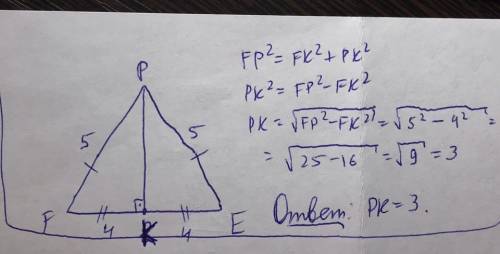 P
5 5
F 4 K 4 E
FP² = FK² + PK²
PK² = FP² - FK²
PK = √(FP² - FK²) = √(5² - 4²) =
= √(25 - 16) = √9 = 3
Ответ: PK = 3.